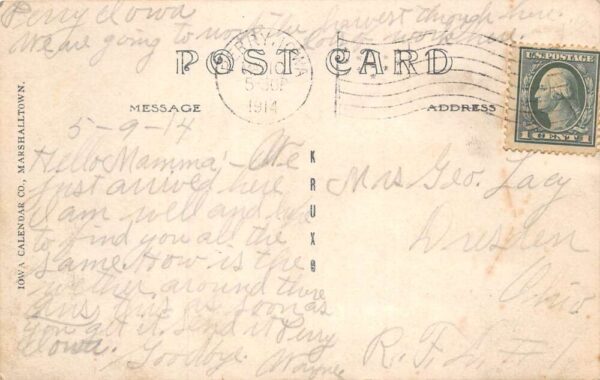 Perry Iowa
We are going to work the harvest through here.
POST CARD
PERRY, IOWA
1914
U.S. POSTAGE
1 CENT 1
MESSAGE
ADDRESS
5-9-14
Hello Mamma, - We
just arrived here
I am well and hope
to find you all the
same. How is the
wether around there
Ans this as soon as
you get it. Send it Perry
Iowa.
Goodbye.
Wayne
KRUXO
Mrs Geo. Lacy
Dresden
Ohio
R.F.D. #1
IOWA CALENDAR CO., MARSHALLTOWN.